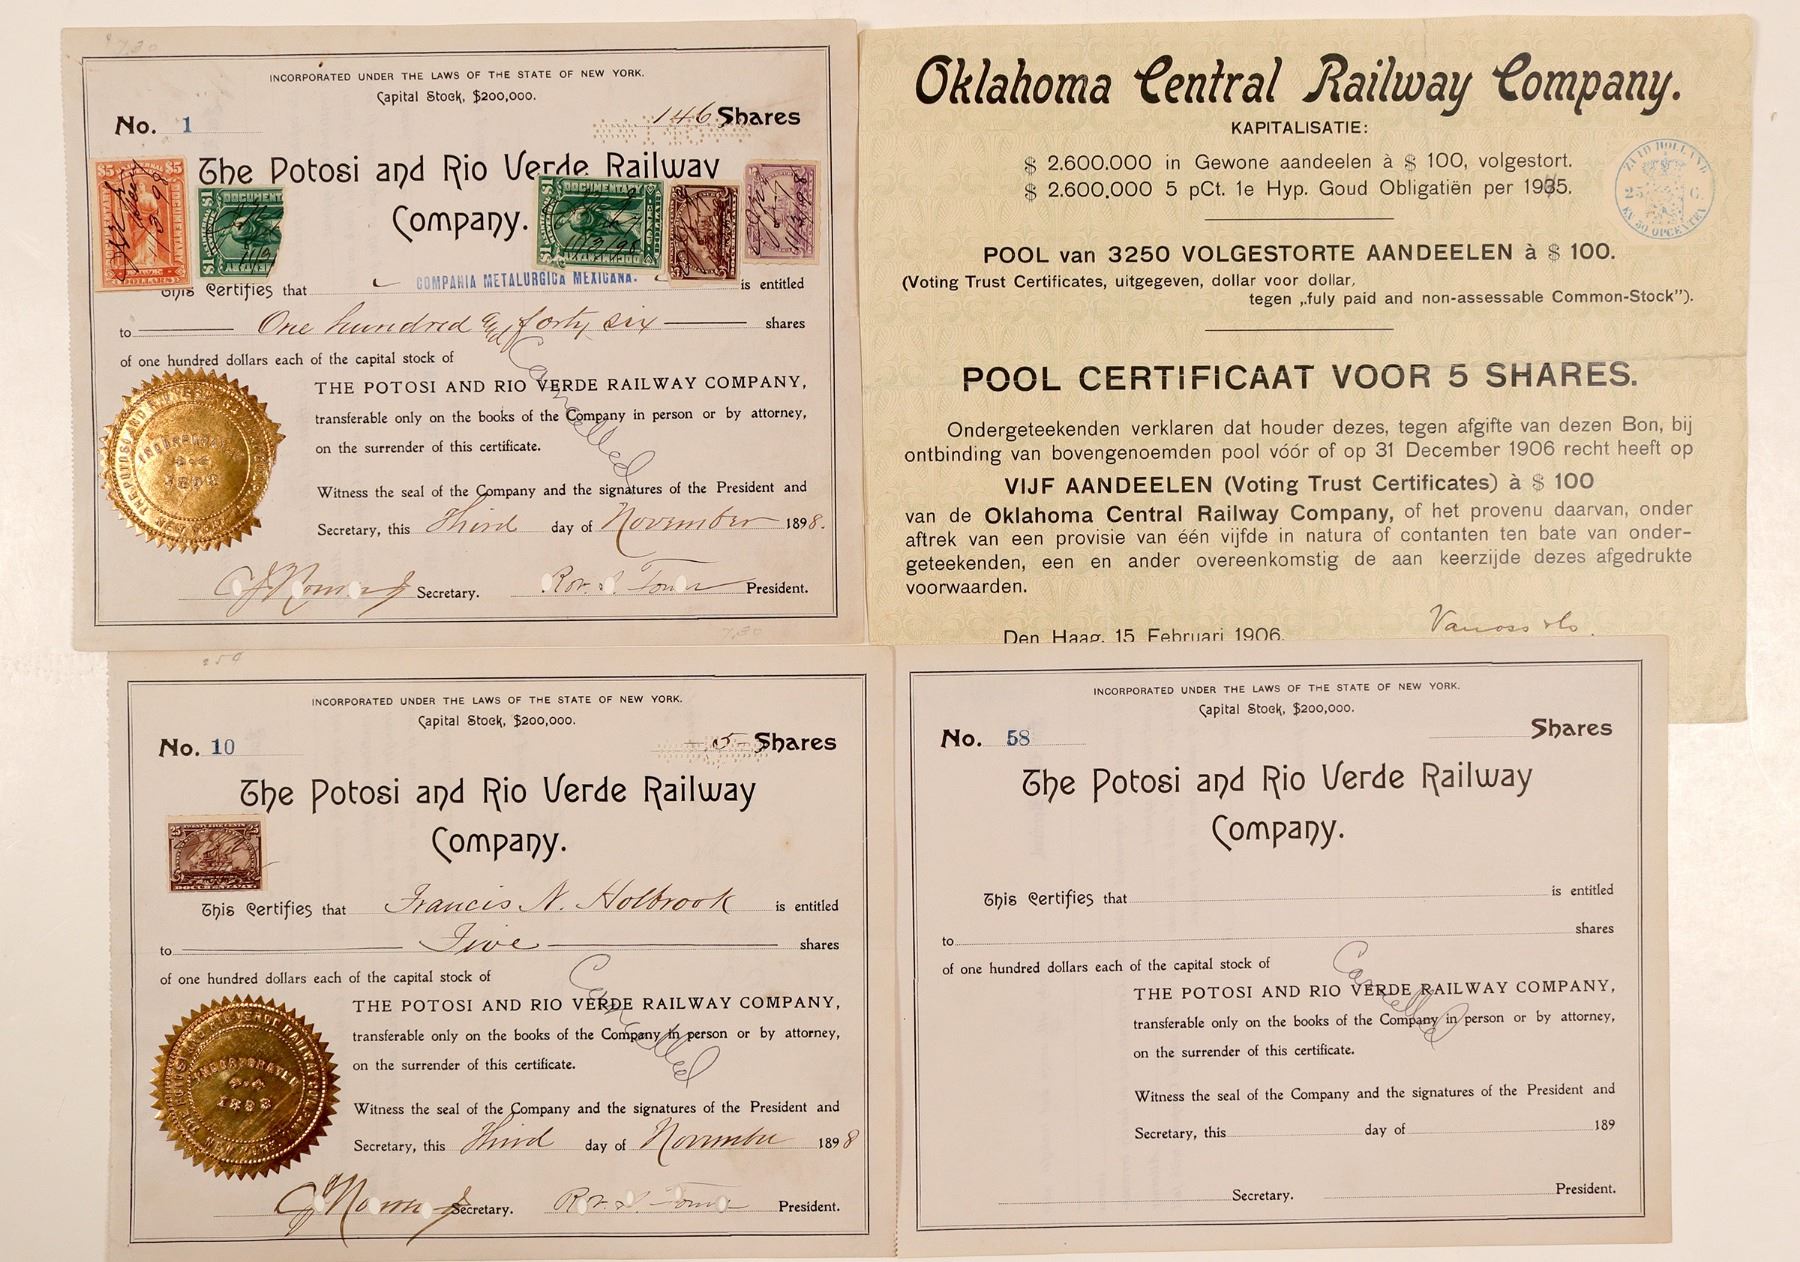 INCORPORATED UNDER THE LAWS OF THE STATE OF NEW YORK.
Capital Stock, $200,000.
No. 1
146 Shares
The Potosi and Rio Verde Railway
Company.
This Certifies that COMPAÑIA METALURGICA MEXICANA. is entitled
to One hundred and forty six shares
of one hundred dollars each of the capital stock of
THE POTOSI AND RIO VERDE RAILWAY COMPANY,
transferable only on the books of the Company in person or by attorney,
on the surrender of this certificate.
Cancelled
Witness the seal of the Company and the signatures of the President and
Secretary, this Third day of November 1898.
Secretary. President.
Oklahoma Central Railway Company.
KAPITALISATIE:
$ 2.600.000 in Gewone aandeelen à $ 100, volgestort.
$ 2.600.000 5 pCt. 1e Hyp. Goud Obligatiën per 1945.
ZUID HOLLAND
25 C.
EN 50 OPCENTEN
POOL van 3250 VOLGESTORTE AANDEELEN à $ 100.
(Voting Trust Certificates, uitgegeven, dollar voor dollar,
tegen „fuly paid and non-assessable Common-Stock").
POOL CERTIFICAAT VOOR 5 SHARES.
Ondergeteekenden verklaren dat houder dezes, tegen afgifte van dezen Bon, bij
ontbinding van bovengenoemden pool vóór of op 31 December 1906 recht heeft op
VIJF AANDEELEN (Voting Trust Certificates) à $ 100
van de Oklahoma Central Railway Company, of het provenu daarvan, onder
aftrek van een provisie van één vijfde in natura of contanten ten bate van onder-
geteekenden, een en ander overeenkomstig de aan keerzijde dezes afgedrukte
voorwaarden.
Den Haag, 15 Februari 1906.
INCORPORATED UNDER THE LAWS OF THE STATE OF NEW YORK.
Capital Stock, $200,000.
No. 10
5 Shares
The Potosi and Rio Verde Railway
Company.
25 TWENTY FIVE CENTS 25
DOCUMENTARY
This Certifies that Francis N. Holbrook is entitled
to Five shares
of one hundred dollars each of the capital stock of
THE POTOSI AND RIO VERDE RAILWAY COMPANY,
transferable only on the books of the Company in person or by attorney,
on the surrender of this certificate.
Cancelled
INCORPORATED
1898
Witness the seal of the Company and the signatures of the President and
Secretary, this Third day of November 1898
Secretary. President.
INCORPORATED UNDER THE LAWS OF THE STATE OF NEW YORK.
Capital Stock, $200,000.
No. 58
Shares
The Potosi and Rio Verde Railway
Company.
This Certifies that is entitled
to shares
of one hundred dollars each of the capital stock of
THE POTOSI AND RIO VERDE RAILWAY COMPANY,
transferable only on the books of the Company in person or by attorney,
on the surrender of this certificate.
Cancelled
Witness the seal of the Company and the signatures of the President and
Secretary, this day of 189
Secretary. President.